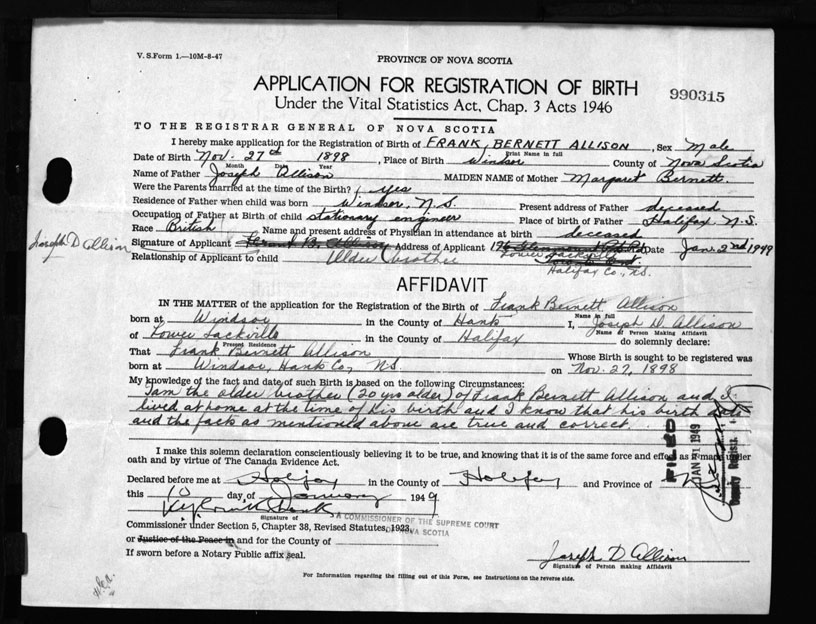 V. S.Form 1.—10M-8-47
PROVINCE OF NOVA SCOTIA
APPLICATION FOR REGISTRATION OF BIRTH
990315
Under the Vital Statistics Act, Chap. 3 Acts 1946
TO THE REGISTRAR GENERAL OF NOVA SCOTIA
I hereby make application for the Registration of Birth of FRANK, BERNETT ALLISON, Sex Male
Print Name in full
Date of Birth Nov. 27th 1898, Place of Birth Windsor County of Nova Scotia
Month Date Year
Name of Father Joseph Allison MAIDEN NAME of Mother Margaret Bernett.
Were the Parents married at the time of the Birth? Yes
Residence of Father when child was born Windsor, N.S. Present address of Father deceased
Occupation of Father at Birth of child stationary engineer Place of birth of Father Halifax N.S.
Race British Name and present address of Physician in attendance at birth deceased
Joseph D Allison
Signature of Applicant Frank B. Allison Address of Applicant Date Jan. 2nd 1949
Lower Sackville
Relationship of Applicant to child Older brother
Halifax Co., N.S.
AFFIDAVIT
IN THE MATTER of the application for the Registration of the Birth of Frank Bernett Allison
Name in full
born at Windsor in the County of Hank I, Joseph D. Allison
Name of Person Making Affidavit
of Lower Sackville in the County of Halifax do solemnly declare:
Present Residence
That Frank Bernett Allison Whose Birth is sought to be registered was
born at Windsor, Hank Co, N.S. on Nov. 27, 1898
My knowledge of the fact and date of such Birth is based on the following Circumstances:
I am the older brother (20 yrs older) of Frank Bernett Allison and I
lived at home at the time of his birth and I know that his birth date
and the facts as mentioned above are true and correct.
FILED
JAN 31 1949
County Registrar
I make this solemn declaration conscientiously believing it to be true, and knowing that it is of the same force and effect as if made under
oath and by virtue of The Canada Evidence Act.
Declared before me at Halifax in the County of Halifax and Province of N.S.
this 10 day of January 1949
Signature of
A COMMISSIONER OF THE SUPREME COURT
OF NOVA SCOTIA
Commissioner under Section 5, Chapter 38, Revised Statutes, 1923,
or Justice of the Peace in and for the County of
If sworn before a Notary Public affix seal.
Joseph D Allison
Signature of Person making Affidavit
For Information regarding the filling out of this Form, see Instructions on the reverse side.